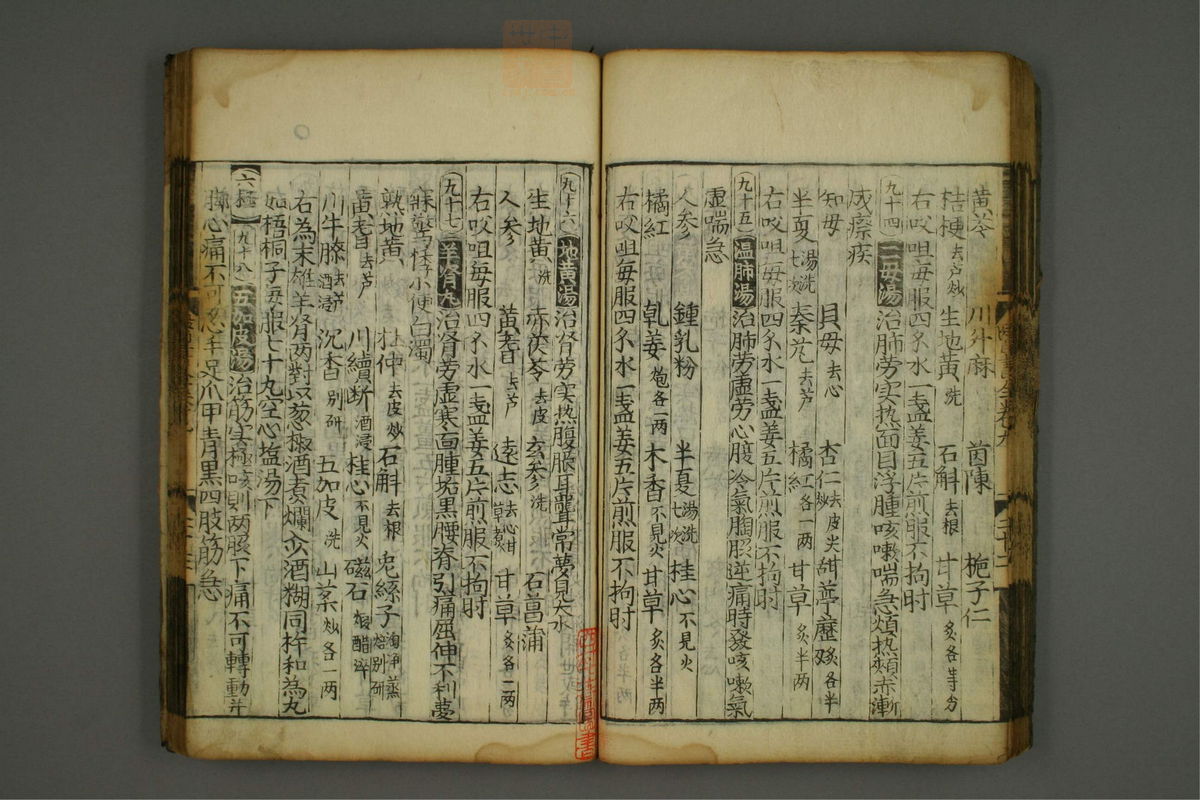 黄芩 川升麻 茵陳 梔子仁
桔梗去芦炒 生地黄洗 石斛去根 甘草炙各等分
右㕮咀每服四钱水一盏姜五片煎服不拘时
九十四 二母湯 治肺劳实热面目浮腫咳嗽喘急煩热頰赤漸
成瘵疾
知母 貝母去心 杏仁去皮尖炒 甜葶藶炒各半
半夏湯洗七次 秦艽去芦 橘紅各一两 甘草炙半两
右㕮咀每服四钱水一盏姜五片煎服不拘时
九十五 温肺湯 治肺劳虚劳心腹冷氣胸膈逆痛時發咳嗽氣
虚喘急
人参 鍾乳粉 半夏湯洗七次 桂心不見火
橘紅 乹姜炮各一两 木香不見火 甘草炙各半两
右㕮咀每服四钱水一盏姜五片煎服不拘时
九十六 地黄湯 治肾劳实热腹脹耳聾常夢見大水
生地黄洗 赤茯苓去皮 玄参洗 石菖蒲
人参 黄耆去芦 遠志去心甘草煮 甘草炙各一两
右㕮咀每服四钱水一盏姜五片煎服不拘时
九十七 羊肾丸 治肾劳虚寒面腫垢黒腰脊引痛屈伸不利夢
寐驚悸小便白濁
熟地黄 杜仲去皮炒 石斛去根 兎絲子淘净蒸焙别研
黄耆去芦 川續断酒浸 桂心不見火 磁石煅醋淬
川牛膝去芦酒浸 沉香别研 五加皮洗 山薬炒各一两
右為末雄羊肾两對以葱椒酒煮爛入酒糊同杵和為丸
如梧桐子每服七十丸空心塩湯下
六極 九十八 五加皮湯 治筋实極咳則两脇下痛不可轉動并
脚心痛不可忍手足爪甲青黒四肢筋急